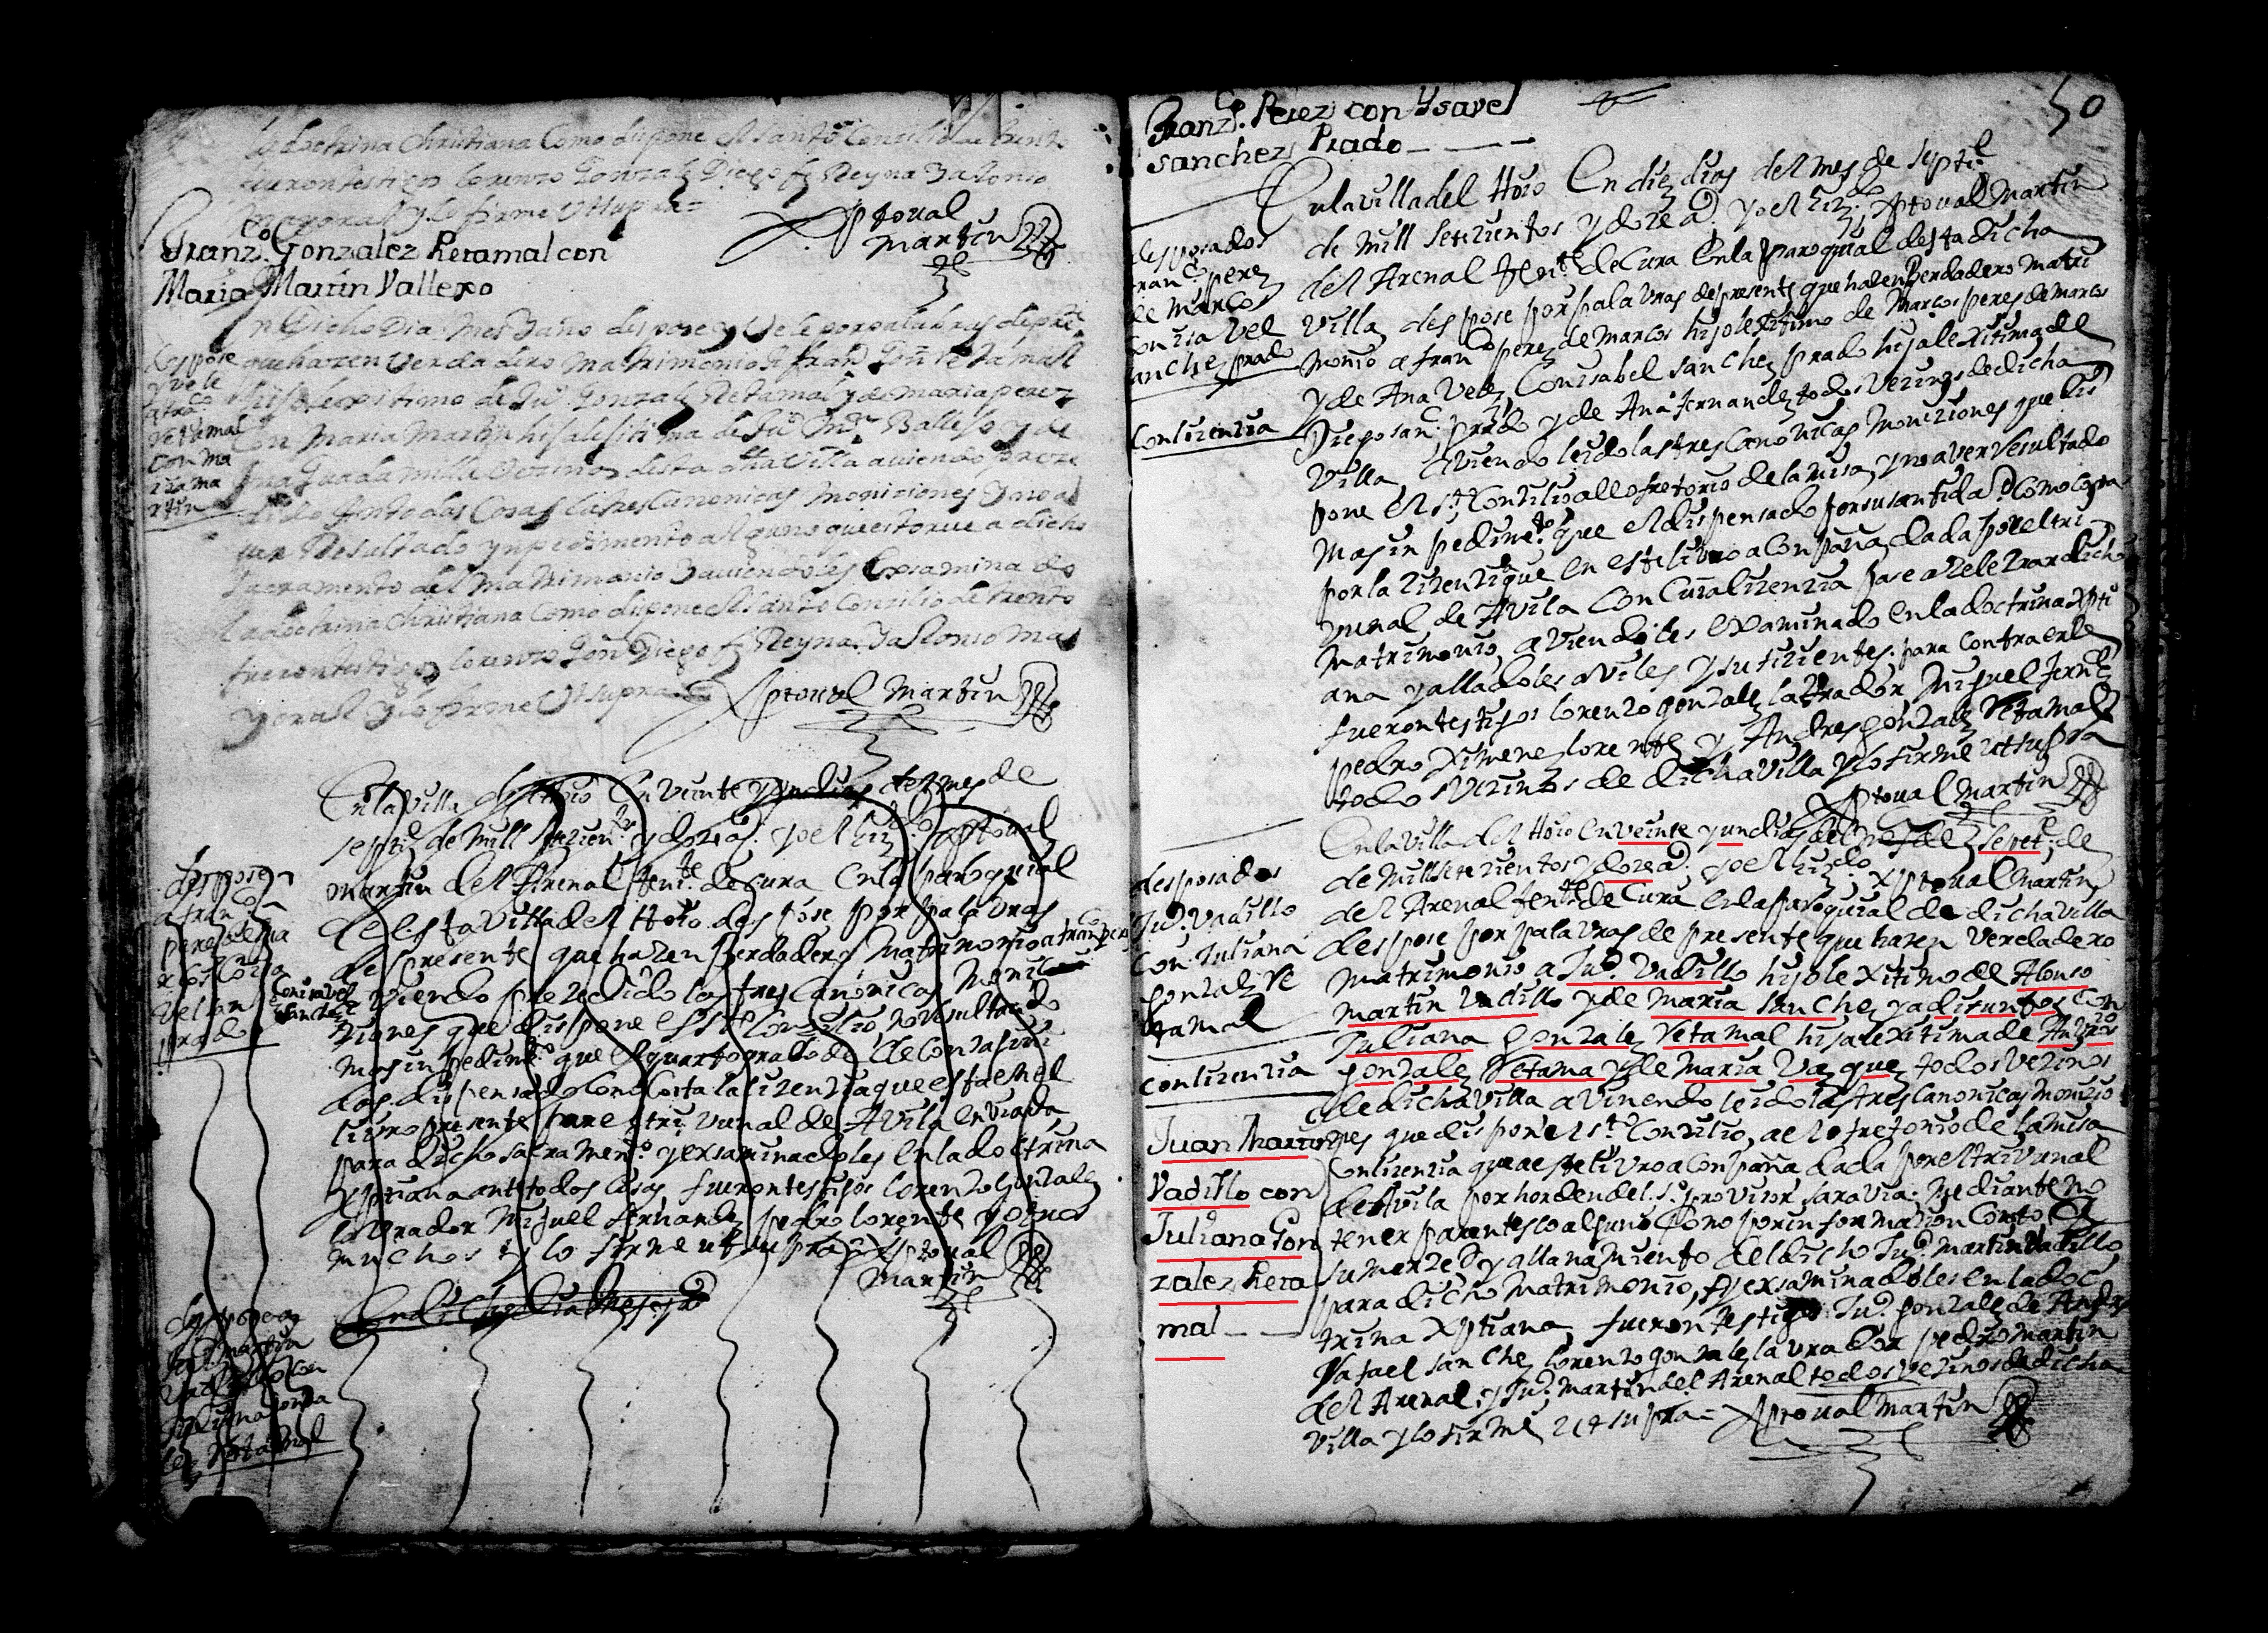 la doctrina Christiana Como dispone el santo Concilio de trento
fueron testigos lorenzo Gonzalez Diego fz Reyna Y alonso
mayoral y lo firme Ut supra =
Xptoual
Martin
Franz.co Gonzalez Retamal con
Maria Martin Vallexo
En Dicho Dia Mes Y año despose y Vele por palabras de preste
que hazen Verdadero Matrimonio a fran.co Gon Retamal
hijo lexitimo de Ju.o Gonzalez Retamal y de Maria perez
con Maria Martin hija lejitima de Ju.o Mrn Ballejo y de
Vecinos desta dha Villa auiendo preze
dido Ante todas Cosas las tres Canonicas moniciones Y no a
uer Resultado ynpedimento alguno que estorue a dicho
sacramento del Matrimonio Y auiendoles Exsaminado
la doctrina Christiana Como dispone el santo Concilio de trento
fueron testigos lorenzo Gon Diego fz Reyna Y alonso Ma
yoral y lo firme Ut supra =
Xptoual Martin
despose
y vele
a fra.co
Retamal
con Ma
ria Ma
rtin
En la Villa del Hoio En Veinte y un dias del mes de
septi.e de Mill setezien.os y doze a.s yo el liz.do Xptoual
Martin del Arenal ten.te de Cura En la parroquial
de esta Villa del Hoio despose por palabras
de presente que hazen Berdadero Matrimonio a fran.co perez
Con isavel
sanchez
aViendo prezedido las tres Canonicas Moni
ziones que dispone el s.to Conzilio no Resultado
mas inpedim.to que el quarto grado de Consaguini
dad dispensado Como Costa la lizenzia que esta en el
livro presente por el trivunal de Avila enviada
para dicho sacramen.to y exsaminadoles en la doctrina
Xptiana ante todas Cosas fueron testigos lorenzo Gonzalez
labrador Miguel Fernandez pedro lorente y otros
muchos y lo firme ut supra = Xptoual
Martin
En dicho dia Mes y año
despose
a fran.co
perez de ma
rcos Con isa
vel san
prado
despose a
Ju.o Martin
Vadillo con
Juliana gonza
lez Retamal
50
Franz.co Perez con Ysavel
sanchez Prado
En la villa del Hoio En diez dias del mes de septi.e
de Mill setezientos y doze a.s yo el liz.do Xptoual Martin
del Arenal ten.te de Cura En la parroquial desta dicha
Villa despose por palavras de presente que hazen Berdadero Matri
monio a fran.co perez de Marcos hijo lexitimo de Marcos perez de Marcos
y de Ana Velez Con isabel sanchez prado hija lexitima de
Diego san.z prado y de Ana Fernandez todos Vezinos de dicha
Villa aViendo leido las tres Canonicas Moniziones que dis
pone el s.to Conzilio al lofretorio de la misa y no aver Resultado
mas inpedim.to que el dispensado por su santidad Como Costa
por la lizenzia que en este livro aConpaña dada por el tri
vunal de Avila Con Cuia lizenzia pase a zelebrar dicho
Matrimonio aViendoles examinado en la doctrina Xpti
ana y alladoles aviles y sufizientes para Contraerle
fueron testigos lorenzo gonzalez labrador Miguel Fern.z
pedro Ximenez lorente y Andres gonzalez Retamal
todos Vezinos de dicha Villa y lo firme ut supra
Xptoual Martin
desposados
fran.co perez
de Marcos
Con isa Vel
sanchez prado
Con lizenzia
En la Villa del Hoio En Veinte y un dias del mes de Sepet.e de
de Mill setezientos y doze a.s yo el liz.do Xptoual Martin
del Arenal ten.te de Cura En la parroquial de dicha Villa
despose por palavras de presente que hazen Verdadero
Matrimonio a Ju.o Vadillo hijo lexitimo de Alonso
Martin Vadillo y de Maria sanchez ya difuntos Con
Juliana gonzalez Retamal hija lexitima de Andres
gonzalez Retama y de Maria Vazquez todos Vezinos
de dicha Villa aViendo leido las tres Canonicas Monizio
nes que dispone el s.to Conzilio, al ofretorio de la misa
Con lizenzia que a este livro aConpaña dada por el trivunal
de Avila por horden del s.r provisor saravia. Mediante no
tener parentesco alguno Como por informazion Costo a
su merzed y allanamiento del dicho Ju.o Martin Vadillo
para dicho Matrimonio, y exsaminadoles en la doc
trina Xptiana, fueron testigos Ju.o gonzalez de Andres
Rafael sanchez lorenzo gonzalez labrador pedro Martin
del Arenal, y Ju.o Martin del Arenal todos Vezinos de dicha
Villa y lo firme ut supra = Xptoual Martin
desposados
Ju.o Vadillo
Con Juliana
gonzalez Re
tamal
Con lizenzia
Juan Martin
Vadillo con
Juliana Gon
zalez Reta
mal